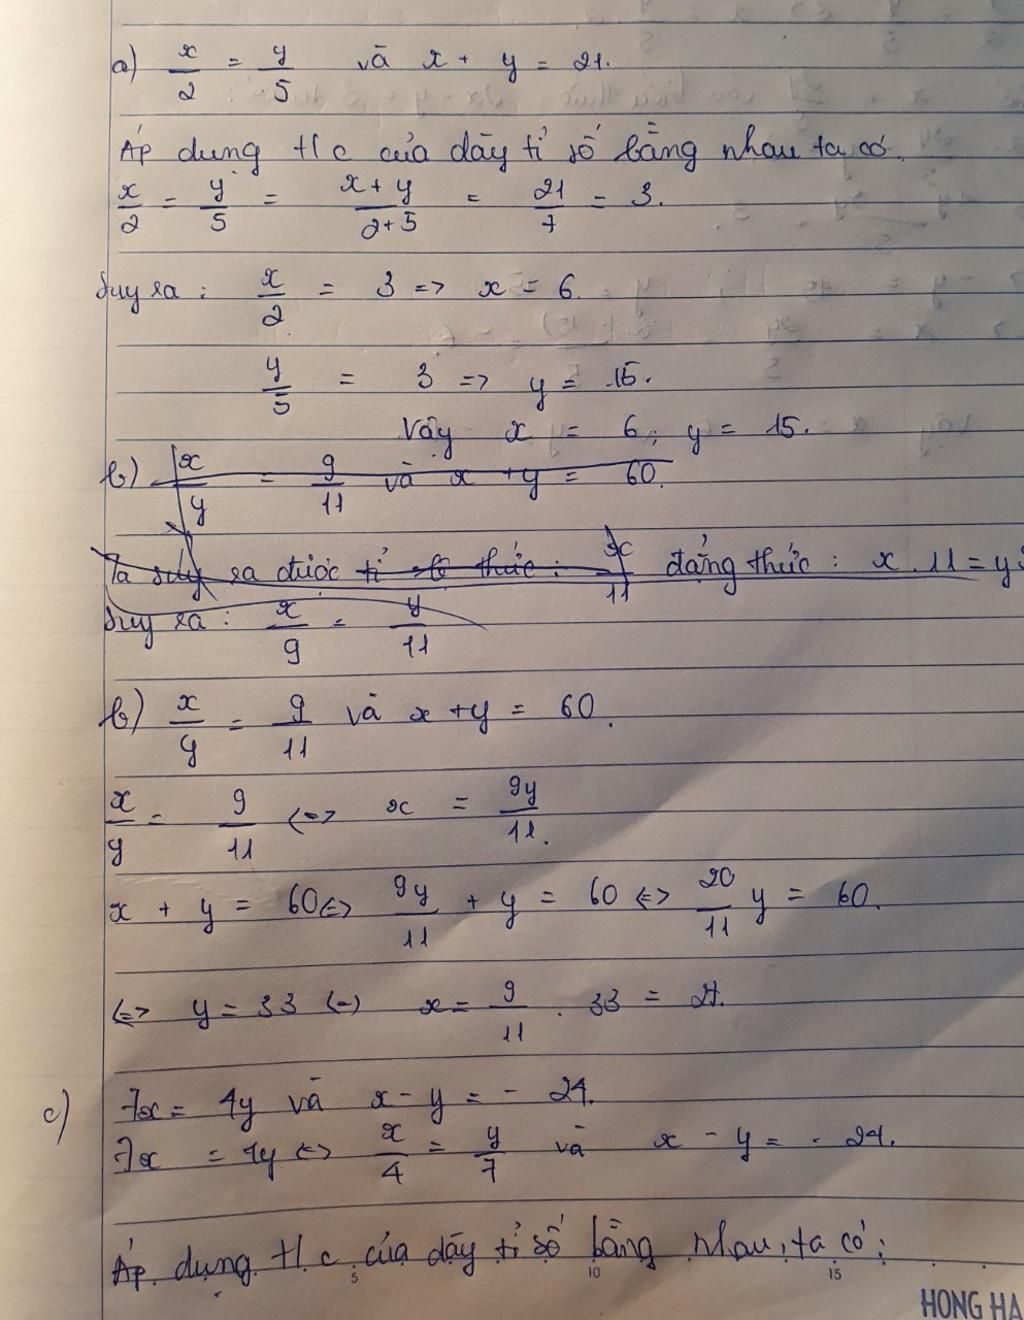 a) x/2 = y/5 và x + y = 21.
Áp dung t/c của dãy tỉ số bằng nhau ta có.
x/2 = y/5 = x+y/2+5 = 21/7 = 3.
Suy ra : x/2 = 3 => x = 6.
y/5 = 3 => y = 15.
Vậy x = 6 ; y = 15.
b) x/y = 9/11 và x + y = 60.
Ta suy ra được tỉ lệ thức : x/11 đẳng thức : x . 11 = y
Suy ra : x/9 = y/11
b) x/y = 9/11 và x + y = 60.
x/y = 9/11 <=> x = 9y/11.
x + y = 60 <=> 9y/11 + y = 60 <=> 20/11 y = 60.
<=> y = 33 (=) x = 9/11 . 33 = 27.
c) 7x = 4y và x - y = - 24.
7x = 4y <=> x/4 = y/7 và x - y = - 24.
Áp dụng t/c của dãy tỉ số bằng nhau, ta có :
5 10 15
HONG HA